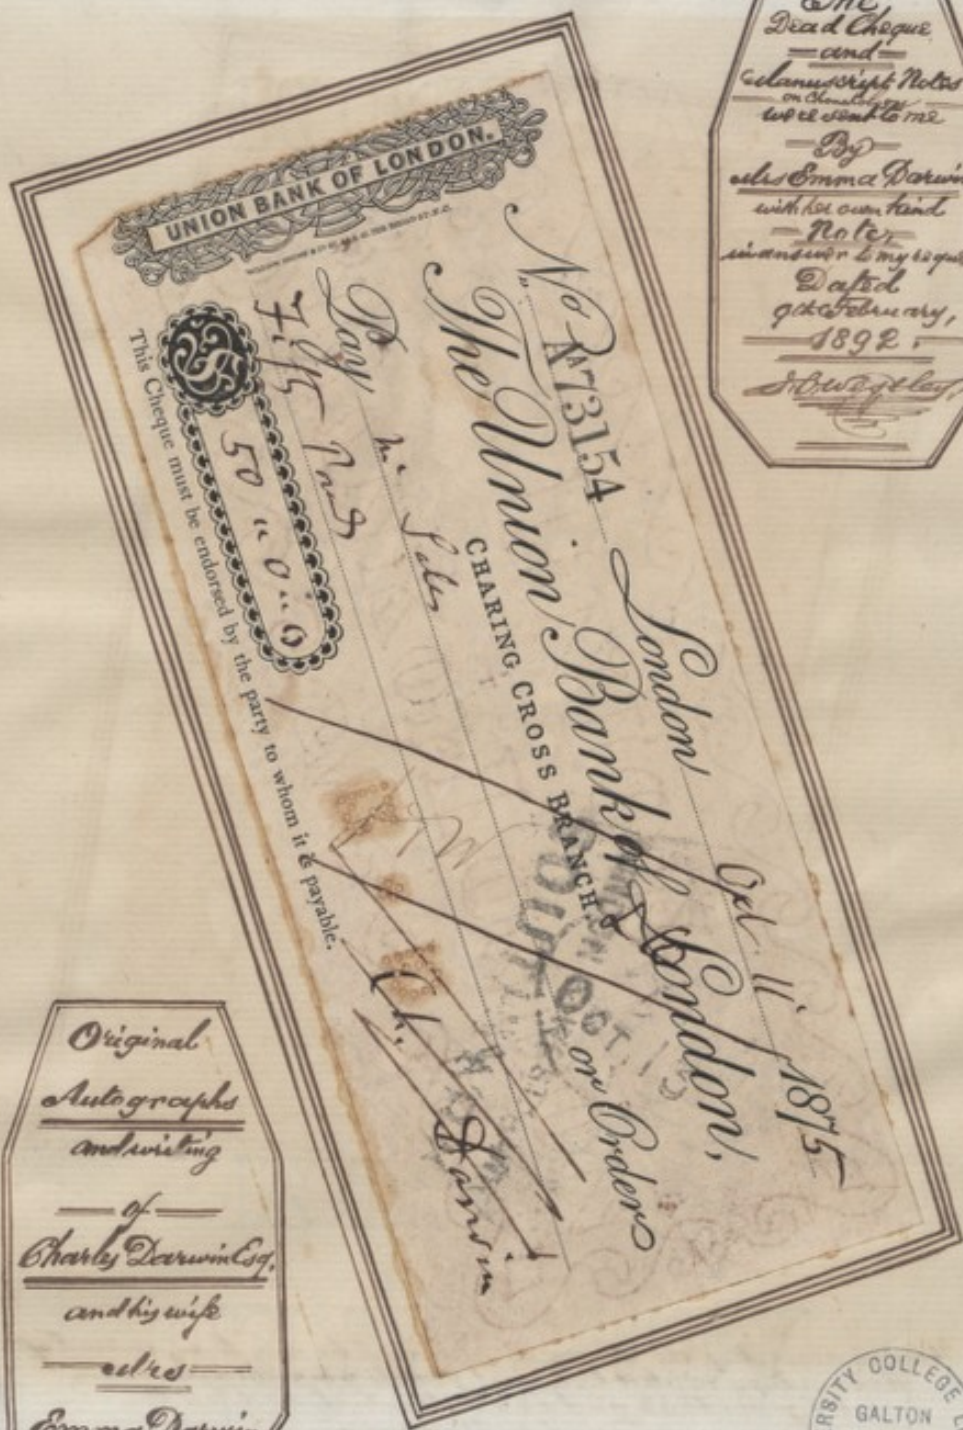 Dead Cheque
and
Manuscript Notes
were sent to me
By
Mrs Emma Darwin
with her own kind
Note,
in answer to my reque
Dated
9th February,
1892.
UNION BANK OF LONDON.
No AA73154 London Oct 11 1875
The Union Bank of London,
CHARING CROSS BRANCH.
Pay or Order
Fifty Pounds
50 " 0 " 0
Ch. Darwin
This Cheque must be endorsed by the party to whom it is payable.
OCT. 13
Original
Autographs
and writing
of
Charles Darwin Esq.
and his wife
Mrs
Emma Darwin
RSITY COLLEGE L
GALTON